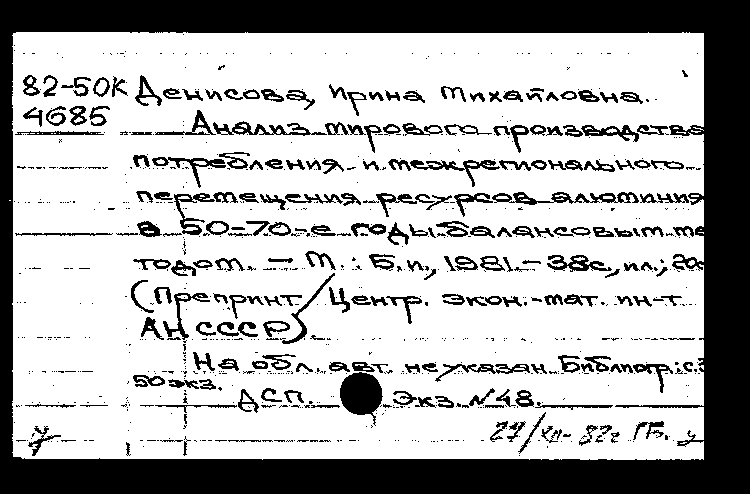 82-50К Денисова, Ирина Михайловна.
4685
Анализ мирового производства
потребления и межрегионального
перемещения ресурсов алюминия
в 50-70-е годы балансовым ме
тодом. — М.: Б.и., 1981.- 38с., ил.; 20
(Препринт / Центр. экон.-мат. ин-т
АН СССР).
На обл. авт. не указан. Библиогр.: с.3
50 экз.
ДСП. Экз. №48.
у 27/XII- 82г ГБ. у